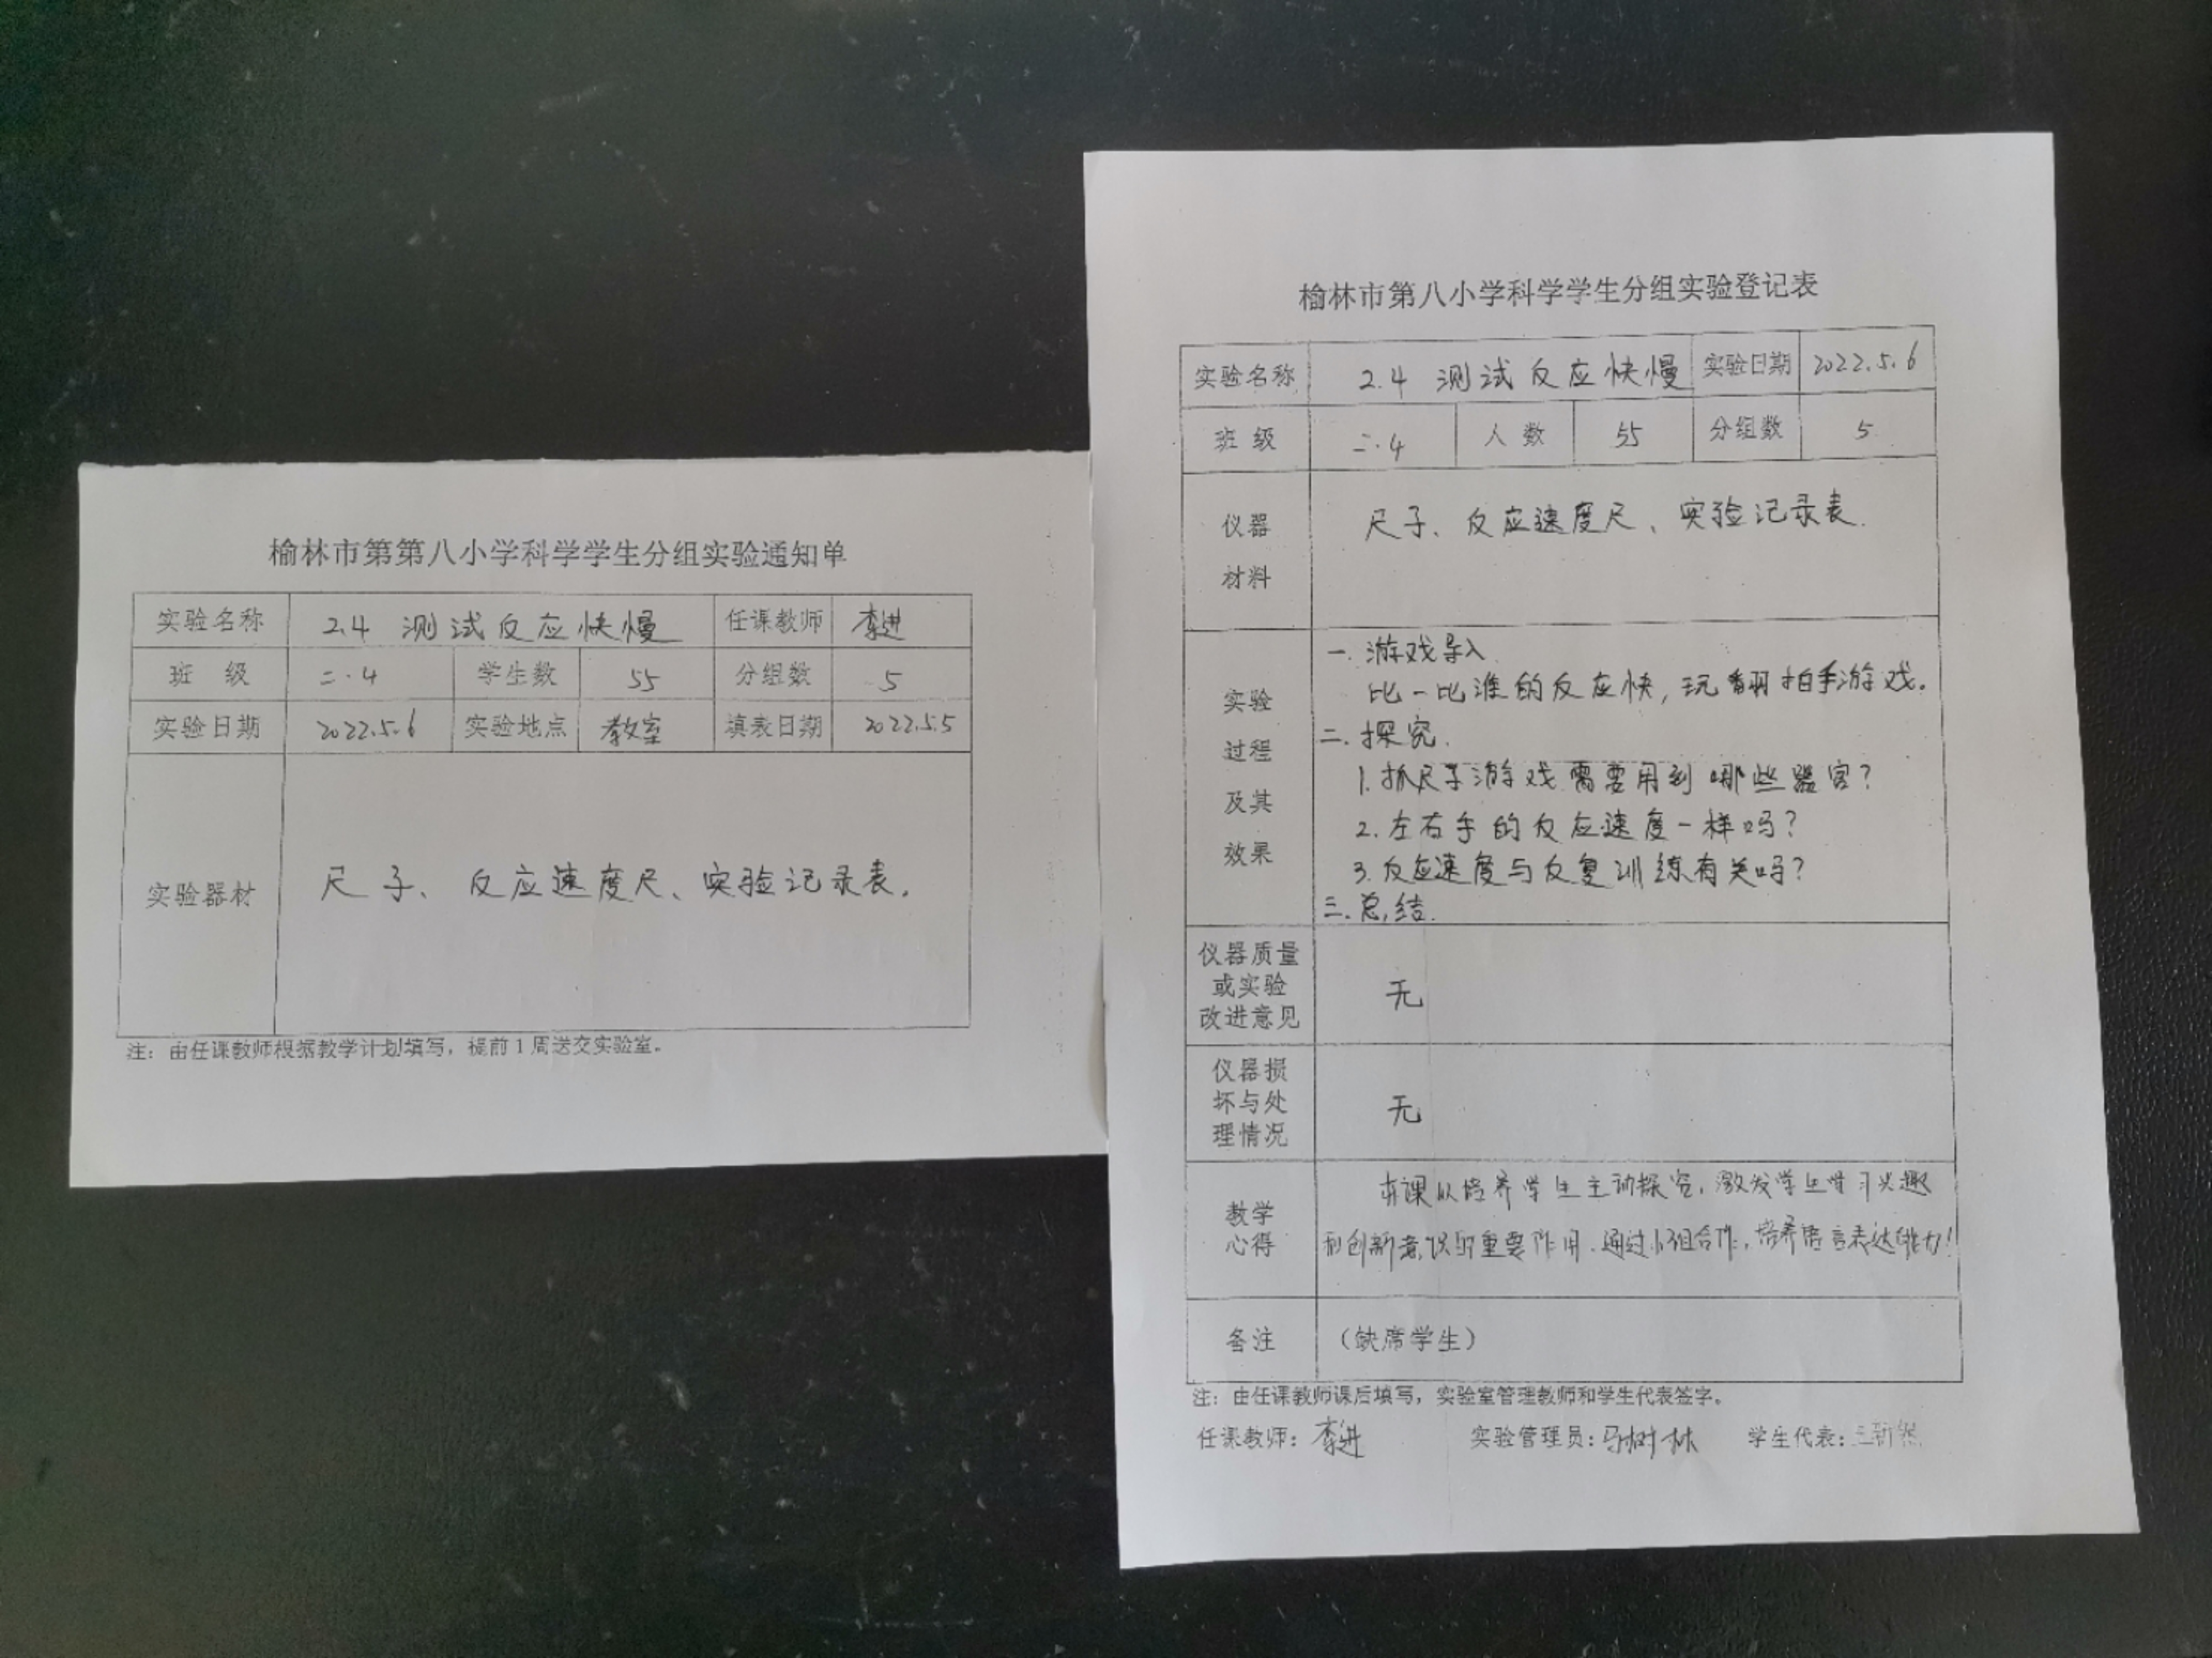 榆林市第第八小学科学学生分组实验通知单
实验名称 2.4 测试反应快慢 任课教师 李进
班 级 二.4 学生数 55 分组数 5
实验日期 2022.5.6 实验地点 教室 填表日期 2022.5.5
实验器材 尺子、反应速度尺、实验记录表.
注：由任课教师根据教学计划填写，提前1周送交实验室。
榆林市第八小学科学学生分组实验登记表
实验名称 2.4 测试反应快慢 实验日期 2022.5.6
班 级 二.4 人数 55 分组数 5
仪器
材料
尺子、反应速度尺、实验记录表.
实验
过程
及其
效果
一. 游戏导入
比一比谁的反应快，玩翻拍手游戏.
二. 探究.
1. 抓尺子游戏需要用到哪些器官？
2. 左右手的反应速度一样吗？
3. 反应速度与反复训练有关吗？
三. 总结.
仪器质量
或实验
改进意见
无
仪器损
坏与处
理情况
无
教学
心得
本课以培养学生主动探究，激发学生学习兴趣
和创新意识的重要作用.通过小组合作，培养语言表达能力！
备注 （缺席学生）
注：由任课教师课后填写，实验室管理教师和学生代表签字。
任课教师：李进 实验管理员：马树林 学生代表：王新